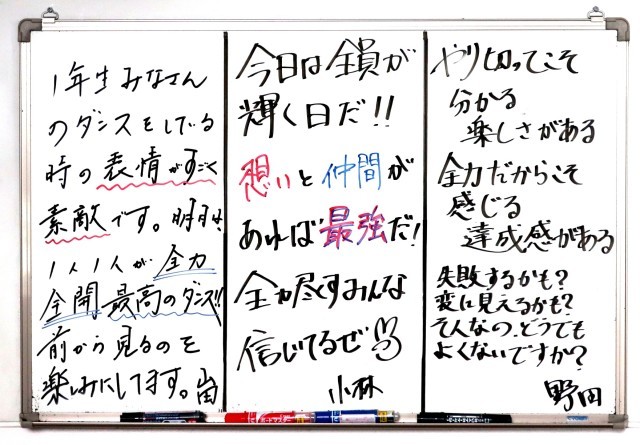 1年生みなさん
のダンスをしている
時の表情がすごく
素敵です。明日は、
1人1人が全力
全開最高のダンス!!
前から見るのを
楽しみにしてます。
今日は全員が
輝く日だ!!
想いと仲間が
あれば最強だ!
全力尽くすみんな
信じてるぜ
小林
やり切ってこそ
分かる
楽しさがある
全力だからこそ
感じる
達成感がある
失敗するかも?
変に見えるかも?
そんなの、どうでも
よくないですか?
野田